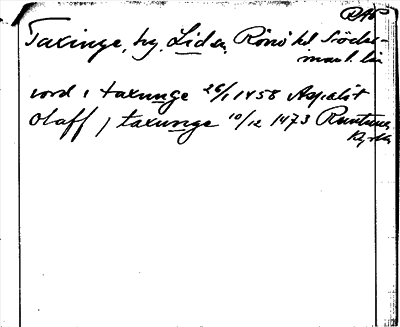 DAP
Taxinge, by, Lida, Rönö hd Söder-
manl. län
iord i taxunge 26/1 1458 Aspalit
Olaff i taxunge 10/12 1473 Runtuna
Kyrka